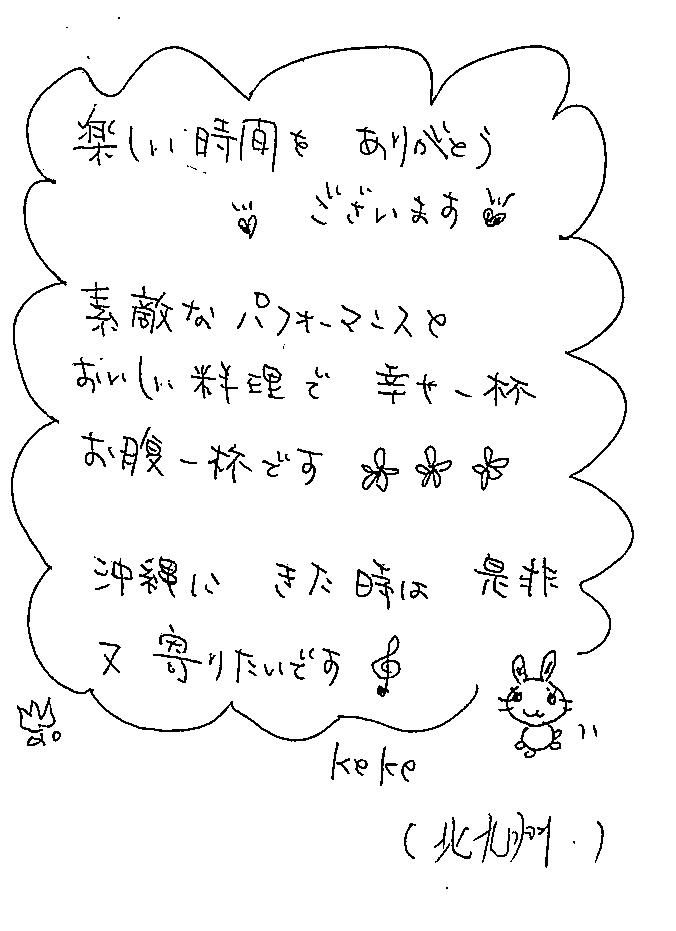 楽しい時間を ありがとう
ございます
素敵な パフォーマンスと
おいしい料理で 幸せ一杯
お腹一杯です
沖縄に きた時は 是非
又 寄りたいです
keke
(北九州)